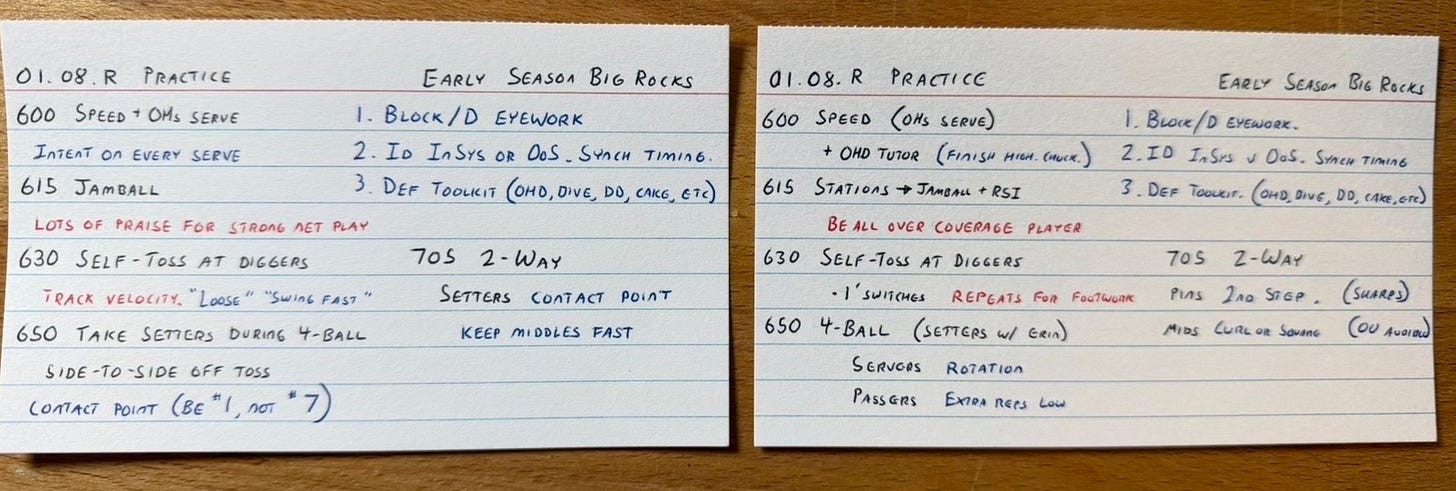 01.08.R PRACTICE EARLY SEASON BIG ROCKS
600 SPEED + OHS SERVE 1. BLOCK/D EYEWORK
INTENT ON EVERY SERVE 2. ID INSYS OR OOS. SYNCH TIMING.
615 JAMBALL 3. DEF TOOLKIT (OHD, DIVE, DD, CAKE, ETC)
LOTS OF PRAISE FOR STRONG NET PLAY
630 SELF-TOSS AT DIGGERS 705 2-WAY
TRACK VELOCITY. "LOOSE" "SWING FAST" SETTERS CONTACT POINT
650 TAKE SETTERS DURING 4-BALL KEEP MIDDLES FAST
SIDE-TO-SIDE OFF TOSS
CONTACT POINT (BE #1, NOT #7)
01.08.R PRACTICE EARLY SEASON BIG ROCKS
600 SPEED (OHS SERVE) 1. BLOCK/D EYEWORK.
+ OHD TUTOR (FINISH HIGH. CHUCK.) 2. ID INSYS V OOS. SYNCH TIMING
615 STATIONS → JAMBALL + RSI 3. DEF TOOLKIT. (OHD, DIVE, DD, CAKE, ETC)
BE ALL OVER COVERAGE PLAYER
630 SELF-TOSS AT DIGGERS 705 2-WAY
· 1' SWITCHES REPEATS FOR FOOTWORK PINS 2ND STEP. (SHARPS)
650 4-BALL (SETTERS W/ ERIN) MIDS CURL OR SQUARE (OU AUDIBLE)
SERVERS ROTATION
PASSERS EXTRA REPS LOW